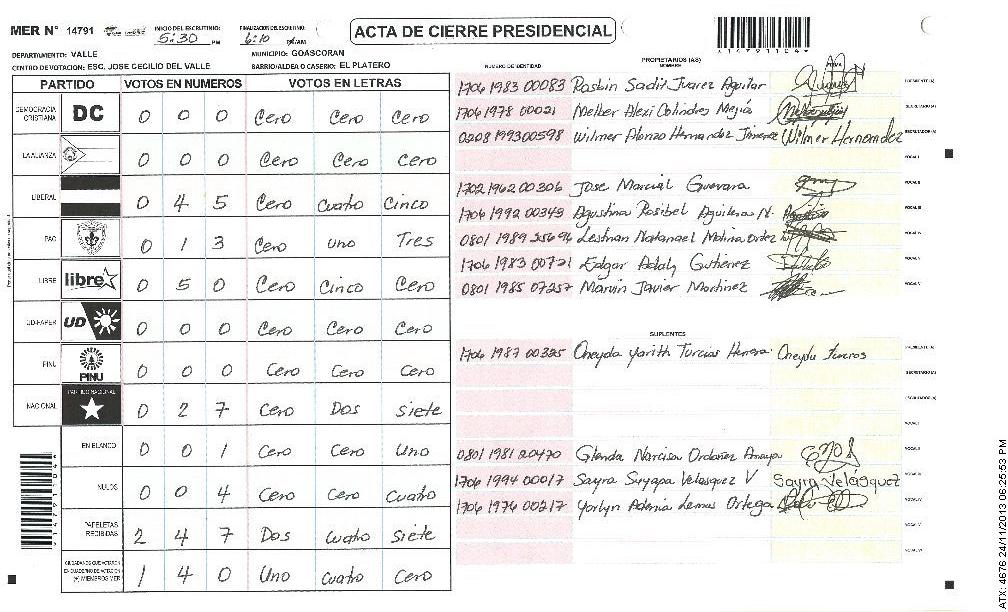 MER N° 14791 INICIO DEL ESCRUTINIO: 5:30 PM FINALIZACION DEL ESCRUTINIO: 6:10 PM/AM
ACTA DE CIERRE PRESIDENCIAL
DEPARTAMENTO: VALLE MUNICIPIO: GOASCORAN
CENTRO DE VOTACION: ESC. JOSE CECILIO DEL VALLE BARRIO/ALDEA O CASERIO: EL PLATERO
PARTIDO VOTOS EN NUMEROS VOTOS EN LETRAS
DEMOCRACIA CRISTIANA DC 0 0 0 Cero Cero Cero
LA ALIANZA 0 0 0 Cero Cero Cero
LIBERAL 0 4 5 Cero cuatro Cinco
PAC 0 1 3 Cero uno Tres
LIBRE libre 0 5 0 Cero Cinco Cero
UD-FAPER UD 0 0 0 Cero Cero Cero
PINU PINU 0 0 0 Cero Cero Cero
NACIONAL PARTIDO NACIONAL 0 2 7 Cero Dos siete
EN BLANCO 0 0 1 Cero Cero Uno
NULOS 0 0 4 Cero Cero cuatro
PAPELETAS RECIBIDAS 2 4 7 Dos cuatro siete
CIUDADANOS QUE VOTARON EN CUADERNO DE VOTACION (+) MIEMBROS MER 1 4 0 Uno cuatro Cero
PROPIETARIOS (AS)
NUMERO DE IDENTIDAD NOMBRE FIRMA
1706 1983 00083 Rosbin Sadit Juarez Aguilar PRESIDENTE (A)
1706 1978 00021 Melker Alexi Colindres Mejia SECRETARIO (A)
0208 1993 00598 Wilmer Alonzo Hernandez Jimenez Wilmer Hernandez ESCRUTADOR (A)
VOCAL I
1702 1962 00306 Jose Marcial Guevara VOCAL II
1706 1992 00343 Agustina Rosibel Aguilera N. VOCAL III
0801 1989 25694 Natanael Molina Ordoñez VOCAL IV
1706 1983 00721 Edgar Adaly Gutiérrez VOCAL V
0801 1985 07257 Marvin Javier Martinez VOCAL VI
SUPLENTES
1706 1987 00325 Oneyda Yarith Turcios Herrera Oneyda Turcios PRESIDENTE (A)
SECRETARIO (A)
ESCRUTADOR (A)
VOCAL I
0801 1981 20470 Glenda Narcisa Ordoñez Amaya VOCAL II
1706 1994 00017 Sayra Suyapa Velasquez V Sayra Velásquez VOCAL III
1706 1976 00217 Yorlyn Lemus Ortega VOCAL IV
VOCAL V
VOCAL VI
ATX: 4676 24/11/2013 06:25:53 PM